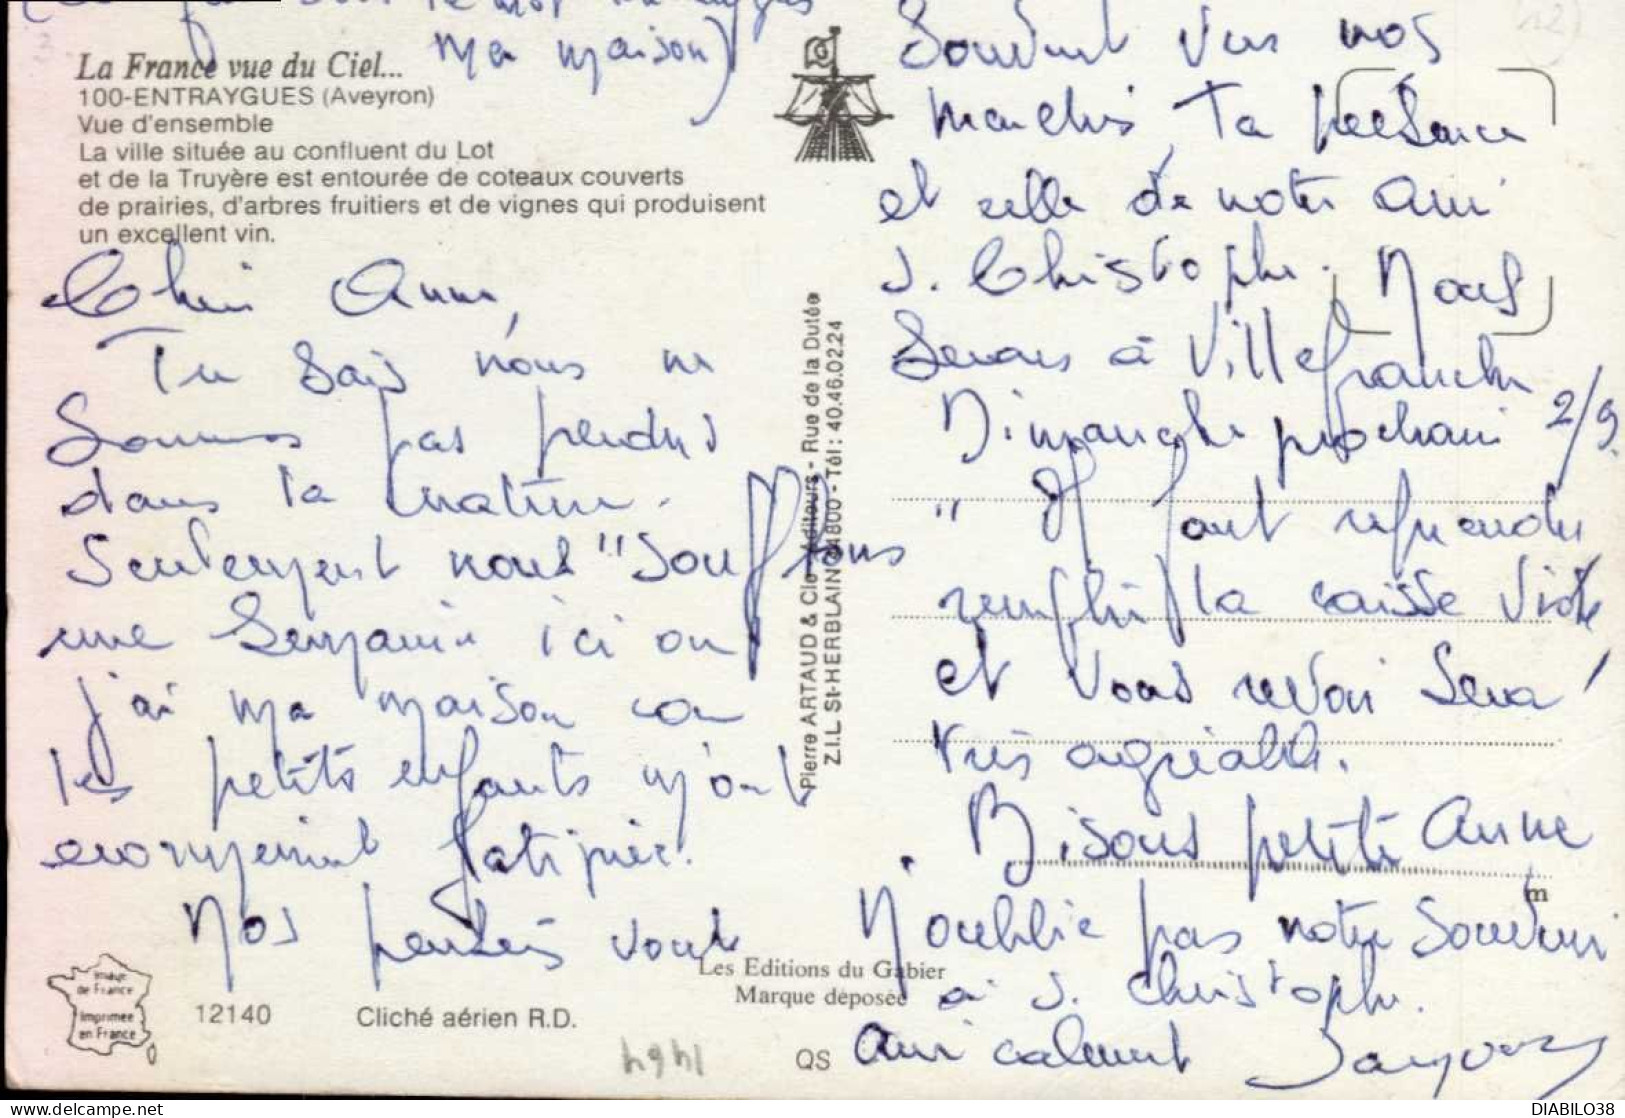 ma maison)
La France vue du Ciel...
100-ENTRAYGUES (Aveyron)
Vue d'ensemble
La ville située au confluent du Lot
et de la Truyère est entourée de coteaux couverts
de prairies, d'arbres fruitiers et de vignes qui produisent
un excellent vin.
Chère Anne,
Tu sais nous ne
sommes pas perdus
dans la nature.
Seulement nous "soufflons
une semaine ici où
j'ai ma maison car
les petits enfants m'ont
énormément fatiguée.
Nos pensées vont
souvent vers nos
marchés, Ta présence
et celle de notre ami
J. Christophe. Nous
serons à Villefranche
Dimanche prochain 2/9.
" Il faut reprendre
remplir la caisse vide
et vous revoir sera
très agréable.
Bisous petite Anne
N'oublie pas notre souvenir
à J. Christophe.
Amicalement
Pierre ARTAUD & Cie Editeurs - Rue de la Dutée
Z.I.L. St-HERBLAIN 44800 - Tél : 40.46.02.24
m
Les Editions du Gabier
Marque déposée
Image
de France
Imprimée
en France
12140
Cliché aérien R.D.
QS
1464
DIABILO38